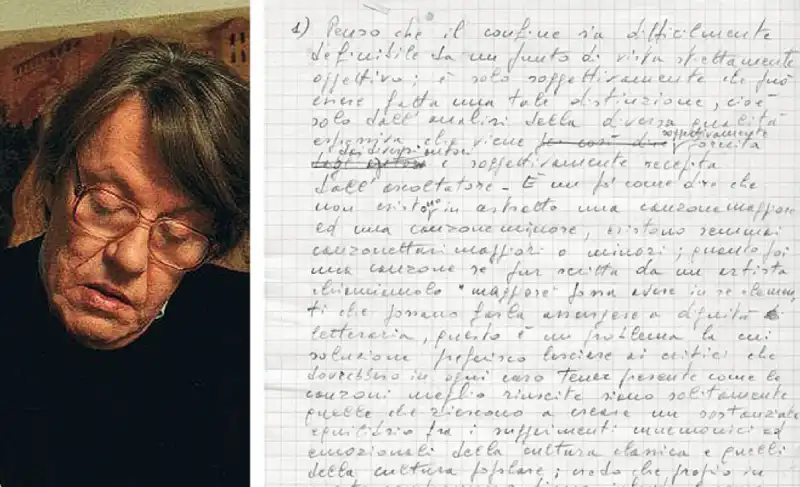 1) Penso che il confine sia difficilmente
definibile da un punto di vista strettamente
oggettivo; è solo soggettivamente che può
essere fatta una tale distinzione, cioè
solo dall'analisi della diversa qualità
soggettivamente
espressiva che viene per così dire fornita
dai diversi autori
dagli autori e soggettivamente recepita
dall'ascoltatore - È un po' come dire che
non esistono in astratto una canzone maggiore
ed una canzone minore, esistono semmai
canzonettari maggiori o minori; quanto poi
una canzone se pur scritta da un artista
chiamiamolo "maggiore" possa avere in sé elemen
ti che possano farla assurgere a dignità
letteraria, questo è un problema la cui
soluzione preferisco lasciare ai critici che
dovrebbero in ogni caso tener presente come le
canzoni meglio riuscite siano solitamente
quelle che riescono a creare un sostanziale
equilibrio fra i suggerimenti mnemonici ed
emozionali della cultura classica e quelli
della cultura popolare; credo che proprio in